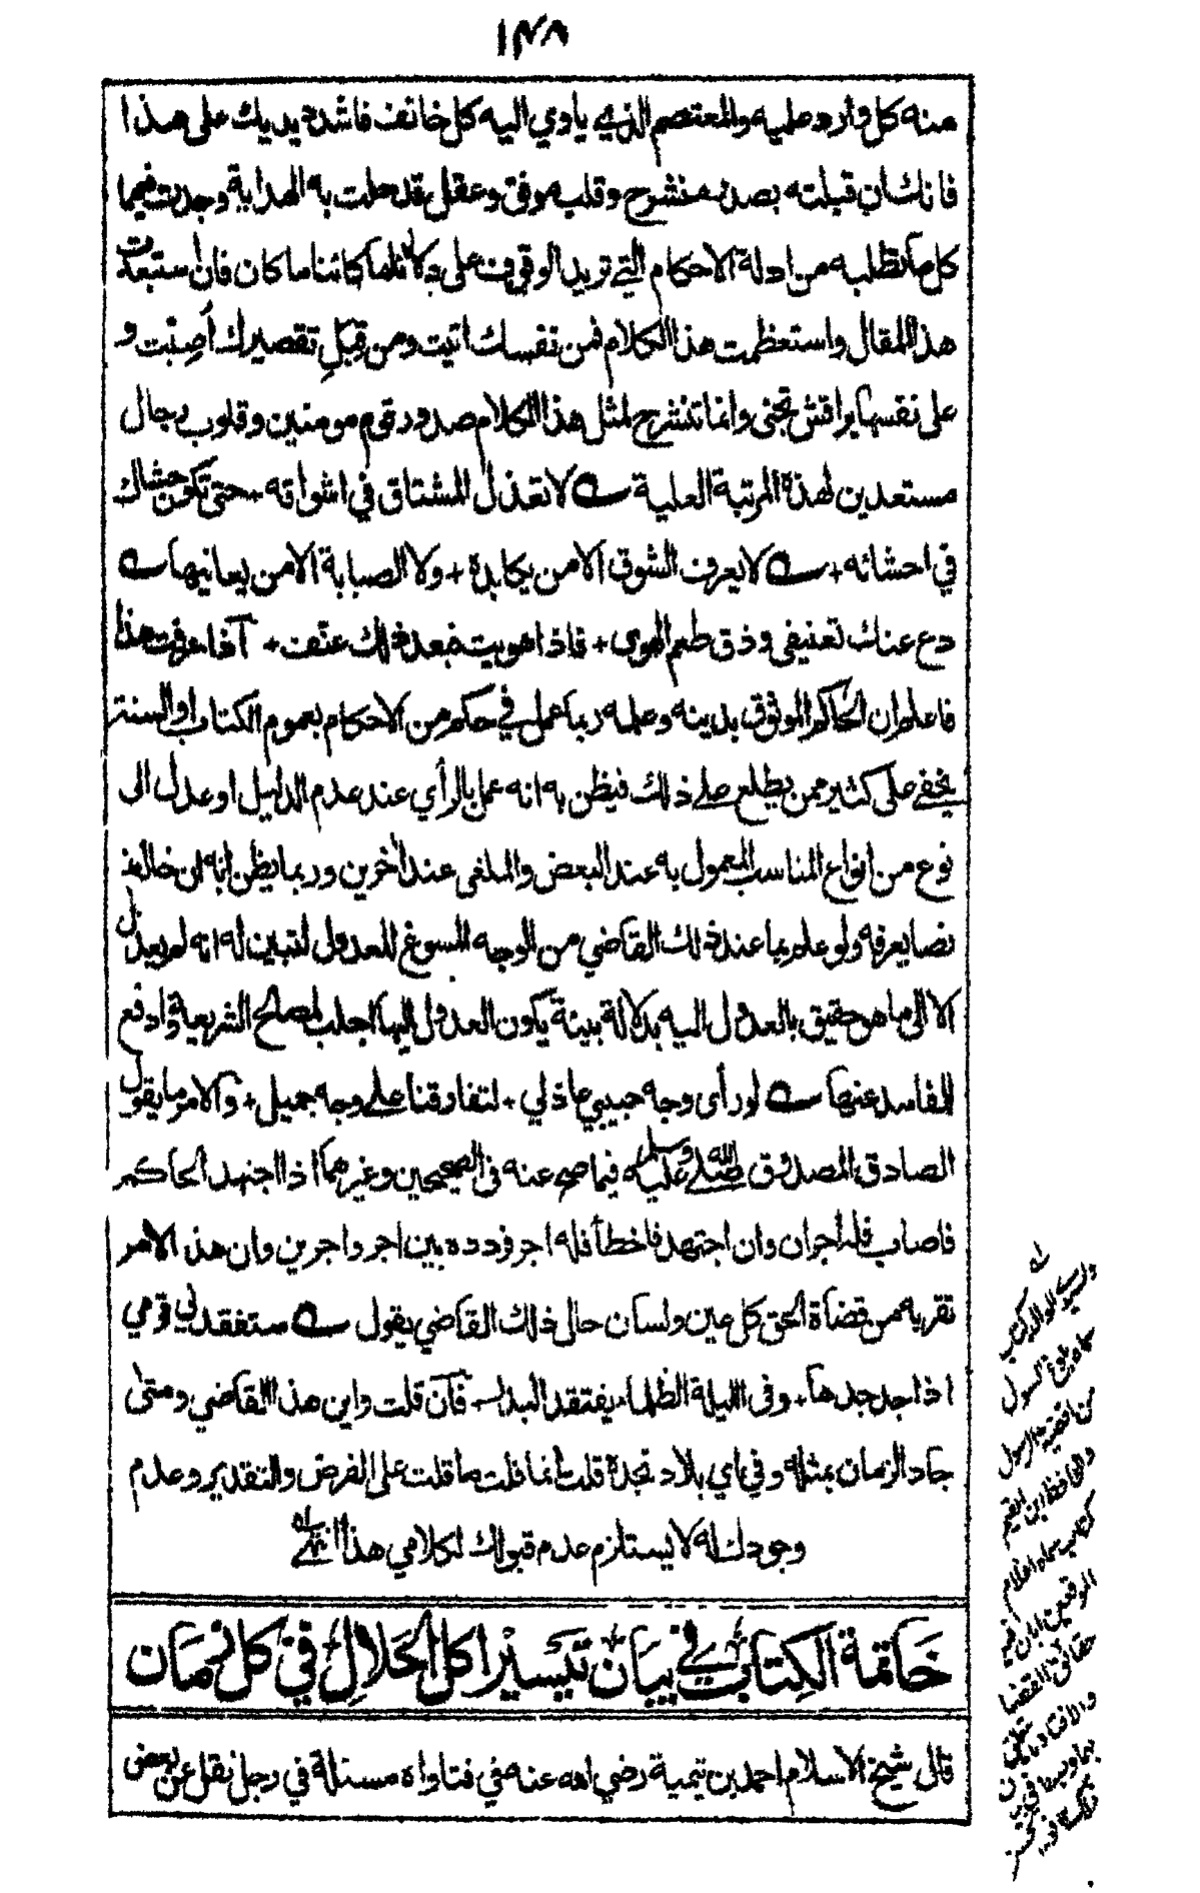 ١٤٨
منه كل وارد عليه والمعتصم الذي ياوي اليه كل خائف فاشدد يديك على هذا
فانك ان قبلته بصدر منشرح وقلب موفق وعقل قد حلت به الهداية وجدت فيها
كل ما تطلبه من ادلة الاحكام التي تريد الوقوف على دلائلها كائنا ما كان فان استبعدت
هذا المقال واستعظمت هذا الكلام فمن نفسك اتيت ومن قِبَلِ تقصيرك أُصِبْت و
على نفسها براقش تجني وانما تنشرح لمثل هذا الكلام صدور قوم مومنين وقلوب رجال
مستعدين لهذه المرتبة العلية ؎ لا تعذل المشتاق في اشواقه + حتى تكون حشاك
في احشائه + ؎ لا يعرف الشوق الا من يكابدة + ولا الصبابة الا من يعانيها ؎
دع عنك تعنيفي وذق طعم الهوى + فاذا هويت فبعد ذلك عنّف + آذا عرفت هذا
فاعلم ان الحاكم الموثوق بدينه وعلمه ربما عمل في حكم من الاحكام بعموم الكتاب او السنة
يخفى على كثير ممن يطلع على ذلك فيظن به انه عمل بالرأي عند عدم الدليل او عدل الى
نوع من انواع المناسب المعمول به عند البعض والملغى عند أخرين وربما يظن انه ان خالف
نصا يعرفه ولو علم بما عند ذلك القاضي من الوجه المسوغ للعدول لتبين له انه لم يعدل
الا الى ما هو حقيق بالعدول اليه بدلالة بينة يكون العدول اليها اجلب لمصالح الشريعة وادفع
للمفاسد عنها ؎ لو رأى وجه حبيبي عاذلي + لتفارقنا على وجه جميل + والامر ما يقول
الصادق المصدوق صلى الله عليه وسلم فيما صح عنه في الصحيحين وغيرهما اذا اجتهد الحاكم
فاصاب فله أجران وان اجتهد فاخطأ فله اجر فردده بين اجر واجرين وان هذا الامر
تقر به من قضاة الحق كل عين ولسان حال ذلك القاضي يقول ؎ ستفقدني قومي
اذا جد جدها + وفي الليلة الظلماء يفتقد البدر + فآن قلت واين هذا القاضي ومتى
جاد الزمان بمثله وفي اي بلاد نجدة قلت انما قلت ما قلت على الفرض والتقدير وعدم
وجود ذلك له لا يستلزم عدم قبولك لكلامي هذا انتهى
خَاتمة الكِتاب في بيان تَيسير اكل الحَلال في كل زمان
قال شيخ الاسلام احمد بن تيمية رضي الله عنه في فتاواه مسئلة في رجل نقل عن بعض
له
ولسيدي الوالد كتاب
سماه بلوغ السول
من اقضية الرسول
وللحافظ ابن القيم
كتاب سماه اعلام
الموقعين ابان فيه
حقائق القضا